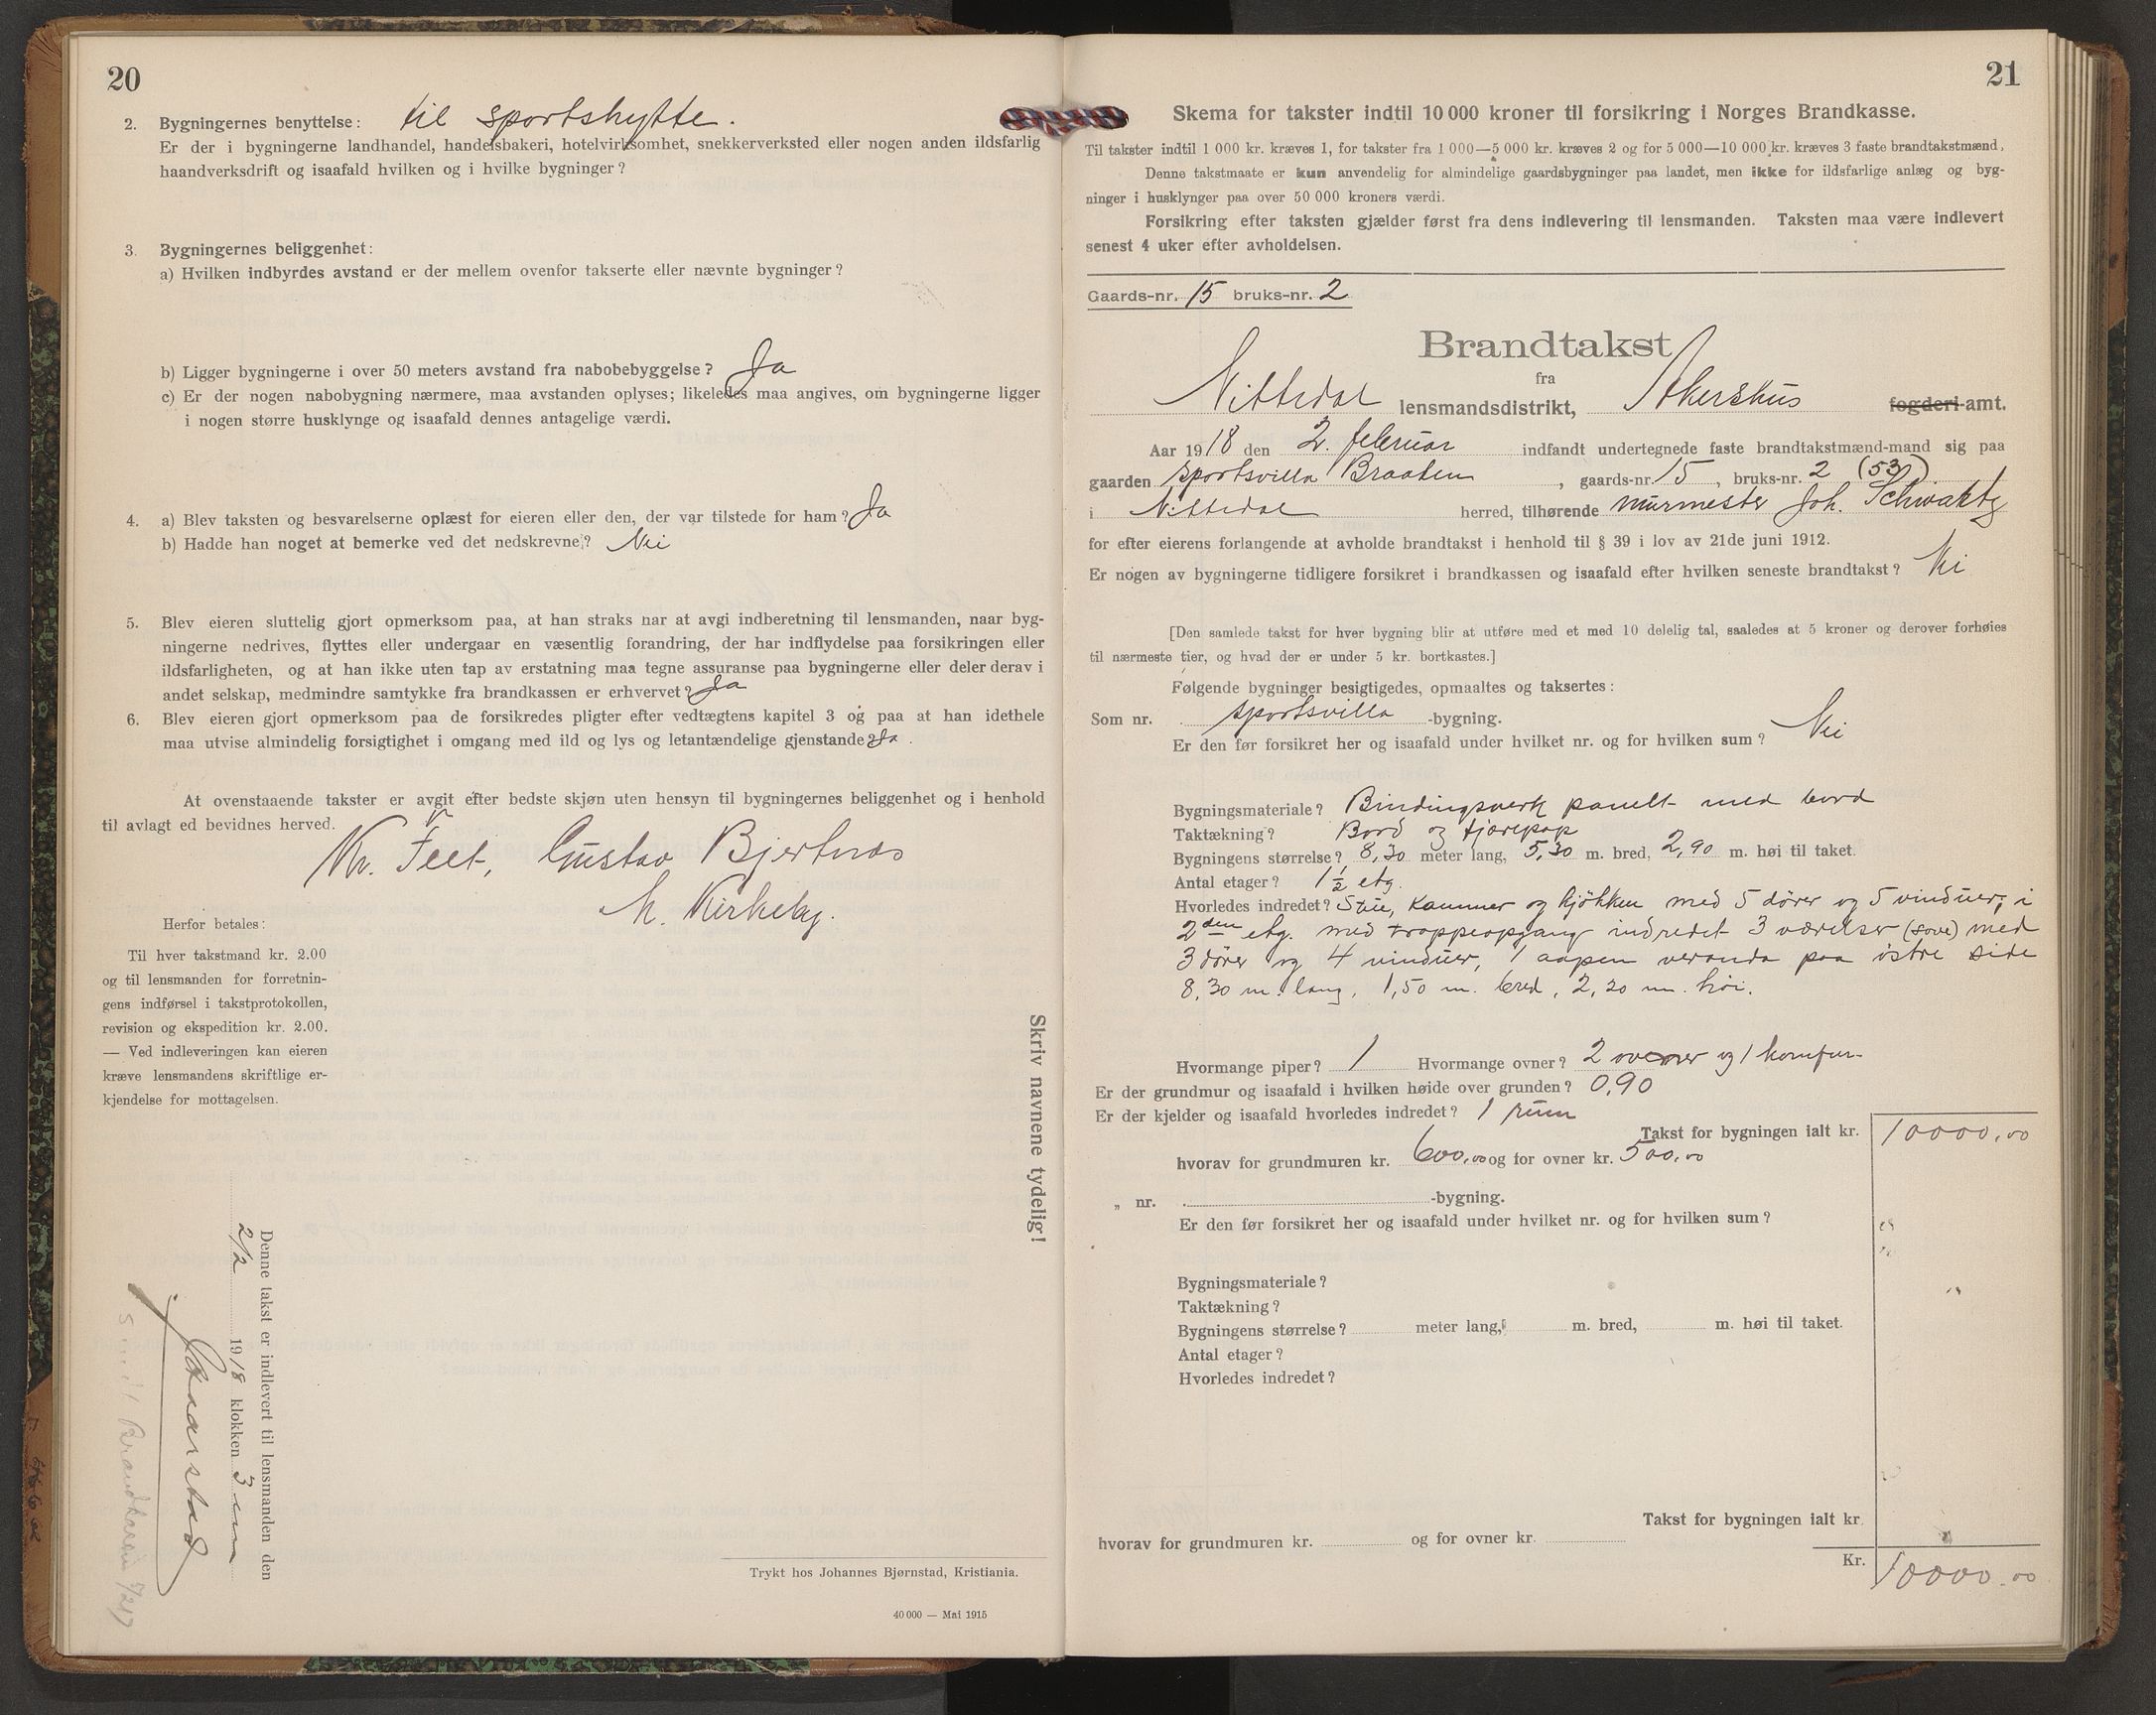 20
2. Bygningernes benyttelse: til sportshytte.
Er der i bygningerne landhandel, handelsbakeri, hotelvirksomhet, snekkerverksted eller nogen anden ildsfarlig
haandverksdrift og isaafald hvilken og i hvilke bygninger?
3. Bygningernes beliggenhet:
a) Hvilken indbyrdes avstand er der mellem ovenfor takserte eller nævnte bygninger?
b) Ligger bygningerne i over 50 meters avstand fra nabobebyggelse? Ja
c) Er der nogen nabobygning nærmere, maa avstanden oplyses; likeledes maa angives, om bygningerne ligger
i nogen større husklynge og isaafald dennes antagelige værdi.
4. a) Blev taksten og besvarelserne oplæst for eieren eller den, der var tilstede for ham? Ja
b) Hadde han noget at bemerke ved det nedskrevne? Nei
5. Blev eieren sluttelig gjort opmerksom paa, at han straks har at avgi indberetning til lensmanden, naar byg-
ningerne nedrives, flyttes eller undergaar en væsentlig forandring, der har indflydelse paa forsikringen eller
ildsfarligheten, og at han ikke uten tap av erstatning maa tegne assuranse paa bygningerne eller deler derav i
andet selskap, medmindre samtykke fra brandkassen er erhvervet? Ja
6. Blev eieren gjort opmerksom paa de forsikredes pligter efter vedtægtens kapitel 3 og paa at han idethele
maa utvise almindelig forsigtighet i omgang med ild og lys og letantændelige gjenstande? Ja.
At ovenstaaende takster er avgit efter bedste skjøn uten hensyn til bygningernes beliggenhet og i henhold
til avlagt ed bevidnes herved.
Kr. Feet, Gustav Bjertnæs
M. Kirkeby.
Herfor betales:
Til hver takstmand kr. 2.00
og til lensmanden for forretnin-
gens indførsel i takstprotokollen,
revision og ekspedition kr. 2.00.
— Ved indleveringen kan eieren
kræve lensmandens skriftlige er-
kjendelse for mottagelsen.
Skriv navnene tydelig!
Denne takst er indlevert til lensmanden den
2/2 1918 klokken 3 em
Trykt hos Johannes Bjørnstad, Kristiania.
40 000 — Mai 1915
21
Skema for takster indtil 10 000 kroner til forsikring i Norges Brandkasse.
Til takster indtil 1 000 kr. kræves 1, for takster fra 1 000—5 000 kr. kræves 2 og for 5 000—10 000 kr. kræves 3 faste brandtakstmænd.
Denne takstmaate er kun anvendelig for almindelige gaardsbygninger paa landet, men ikke for ildsfarlige anlæg og byg-
ninger i husklynger paa over 50 000 kroners værdi.
Forsikring efter taksten gjælder først fra dens indlevering til lensmanden. Taksten maa være indlevert
senest 4 uker efter avholdelsen.
Gaards-nr. 15 bruks-nr. 2
Brandtakst
fra
Nittedal lensmandsdistrikt, Akershus fogderi-amt.
Aar 1918 den 2. februar indfandt undertegnede faste brandtakstmænd-mand sig paa
gaarden Sportsvilla Braaten, gaards-nr. 15, bruks-nr. 2 (53)
i Nittedal herred, tilhørende murmester Joh. Schwartz
for efter eierens forlangende at avholde brandtakst i henhold til § 39 i lov av 21de juni 1912.
Er nogen av bygningerne tidligere forsikret i brandkassen og isaafald efter hvilken seneste brandtakst? Nei
[Den samlede takst for hver bygning blir at utføre med et med 10 delelig tal, saaledes at 5 kroner og derover forhøies
til nærmeste tier, og hvad der er under 5 kr. bortkastes.]
Følgende bygninger besigtigedes, opmaaltes og taksertes:
Som nr. sportsvilla -bygning.
Er den før forsikret her og isaafald under hvilket nr. og for hvilken sum? Nei
Bygningsmateriale? Bindingsverk panelt med bord
Taktækning? Bord og tjærepap
Bygningens størrelse? 8,30 meter lang, 5,30 m. bred, 2,90 m. høi til taket.
Antal etager? 1 1/2 etg.
Hvorledes indredet? Stue, kammer og kjøkken med 5 dører og 5 vinduer; i
2den etg. med trappeopgang indredet 3 værelser (sove) med
3 dører og 4 vinduer, 1 aapen veranda paa østre side
8,30 m. lang, 1,50 m. bred, 2,20 m. høi.
Hvormange piper? 1 Hvormange ovner? 2 ovner og 1 komfur
Er der grundmur og isaafald i hvilken høide over grunden? 0,90
Er der kjelder og isaafald hvorledes indredet? 1 rum
Takst for bygningen ialt kr. 10000,00
hvorav for grundmuren kr. 600,00 og for ovner kr. 500,00
„ nr. -bygning.
Er den før forsikret her og isaafald under hvilket nr. og for hvilken sum?
Bygningsmateriale?
Taktækning?
Bygningens størrelse? meter lang, m. bred, m. høi til taket.
Antal etager?
Hvorledes indredet?
Takst for bygningen ialt kr.
hvorav for grundmuren kr. og for ovner kr.
Kr. 10000.00